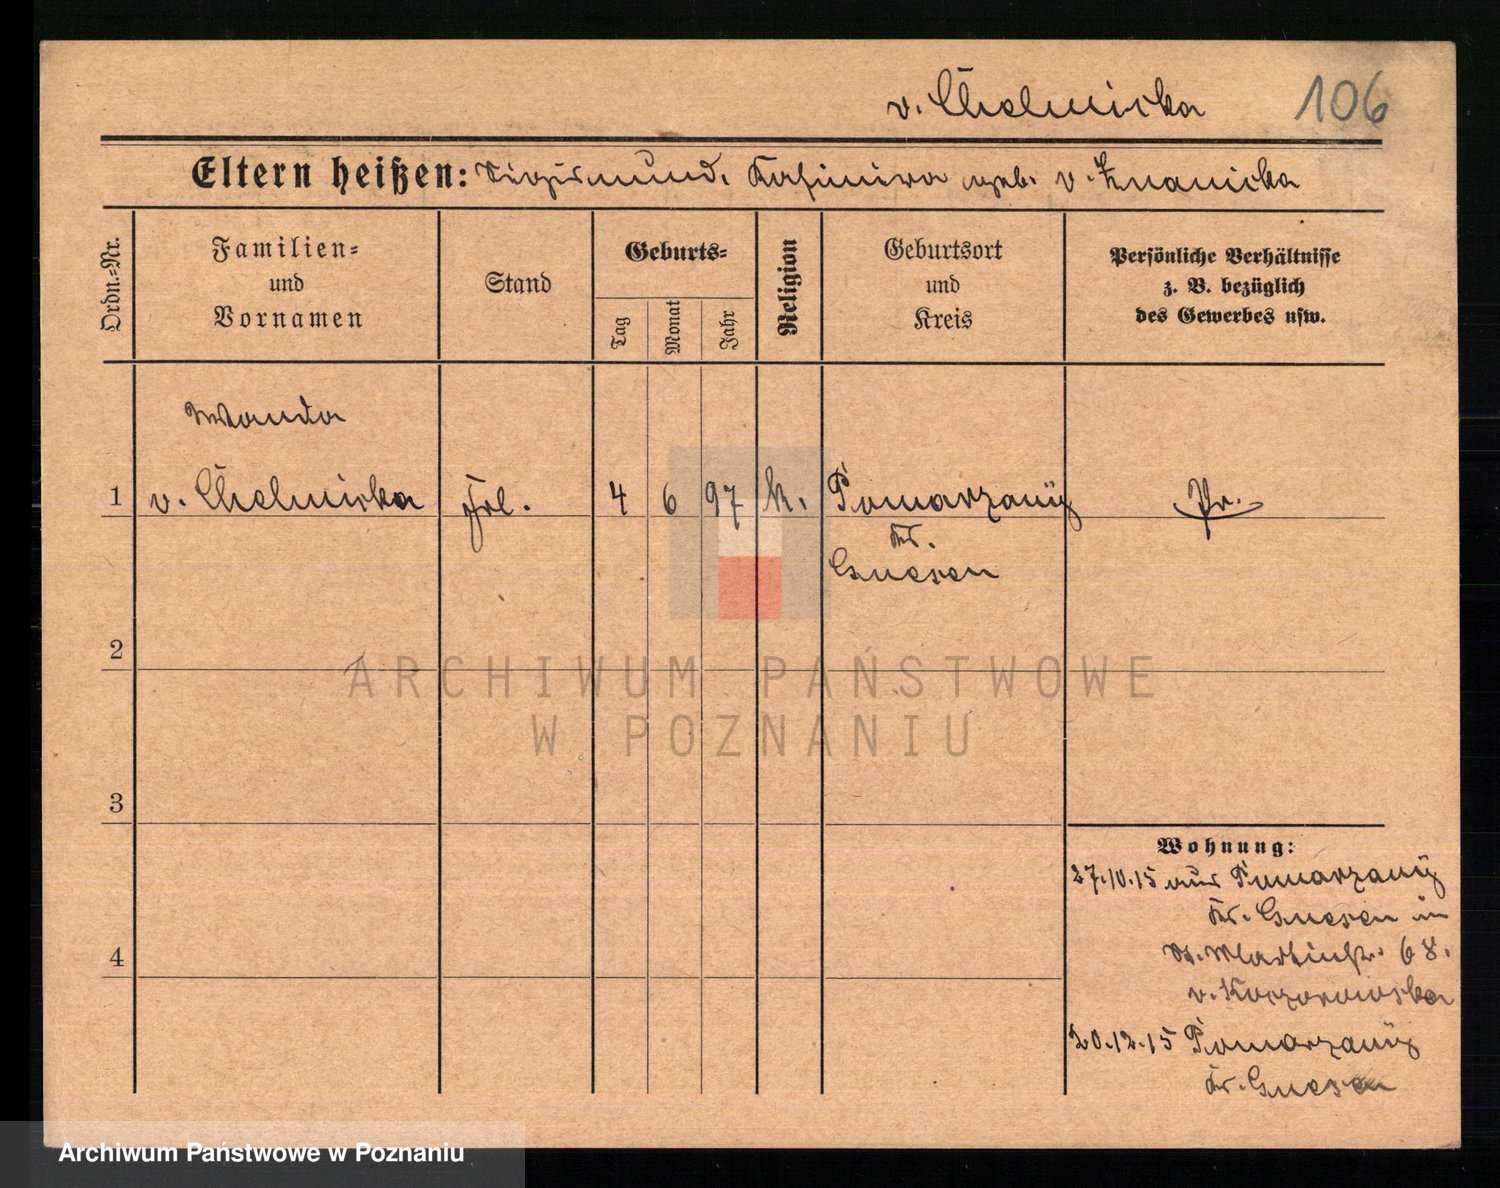 v. Chelmicka 106
Eltern heißen: Sigismund, Kasimira geb. v. Znanicka
Ordn.-Nr.
Familien-
und
Vornamen
Stand
Geburts-
Tag
Monat
Jahr
Religion
Geburtsort
und
Kreis
Persönliche Verhältnisse
z. B. bezüglich
des Gewerbes usw.
Wanda
1 v. Chelmicka Frl. 4 6 97 k. Pomarzany Pr.
Kr.
Gnesen
2
ARCHIWUM PAŃSTWOWE
W POZNANIU
3
Wohnung:
27.10.15 aus Pomarzany
Kr. Gnesen in
St. Martinstr. 68.
v. Koczorowska
4
20.12.15 Pomarzany
Kr. Gnesen
Archiwum Państwowe w Poznaniu